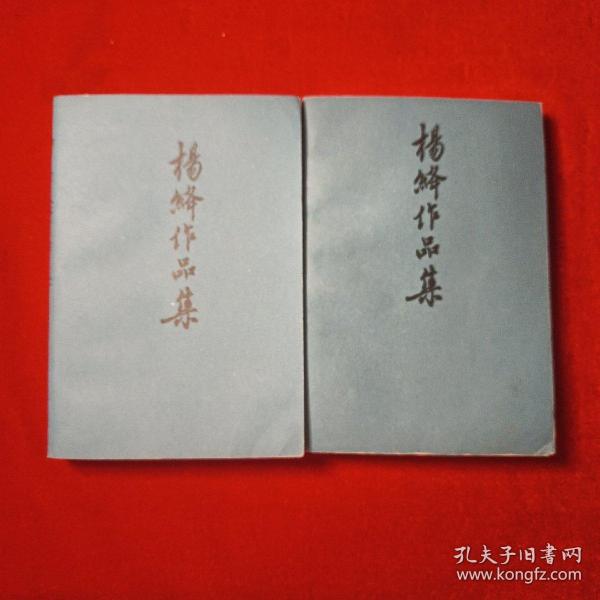 楊絳作品集
楊絳作品集
孔夫子旧書网
www.kongfz.com